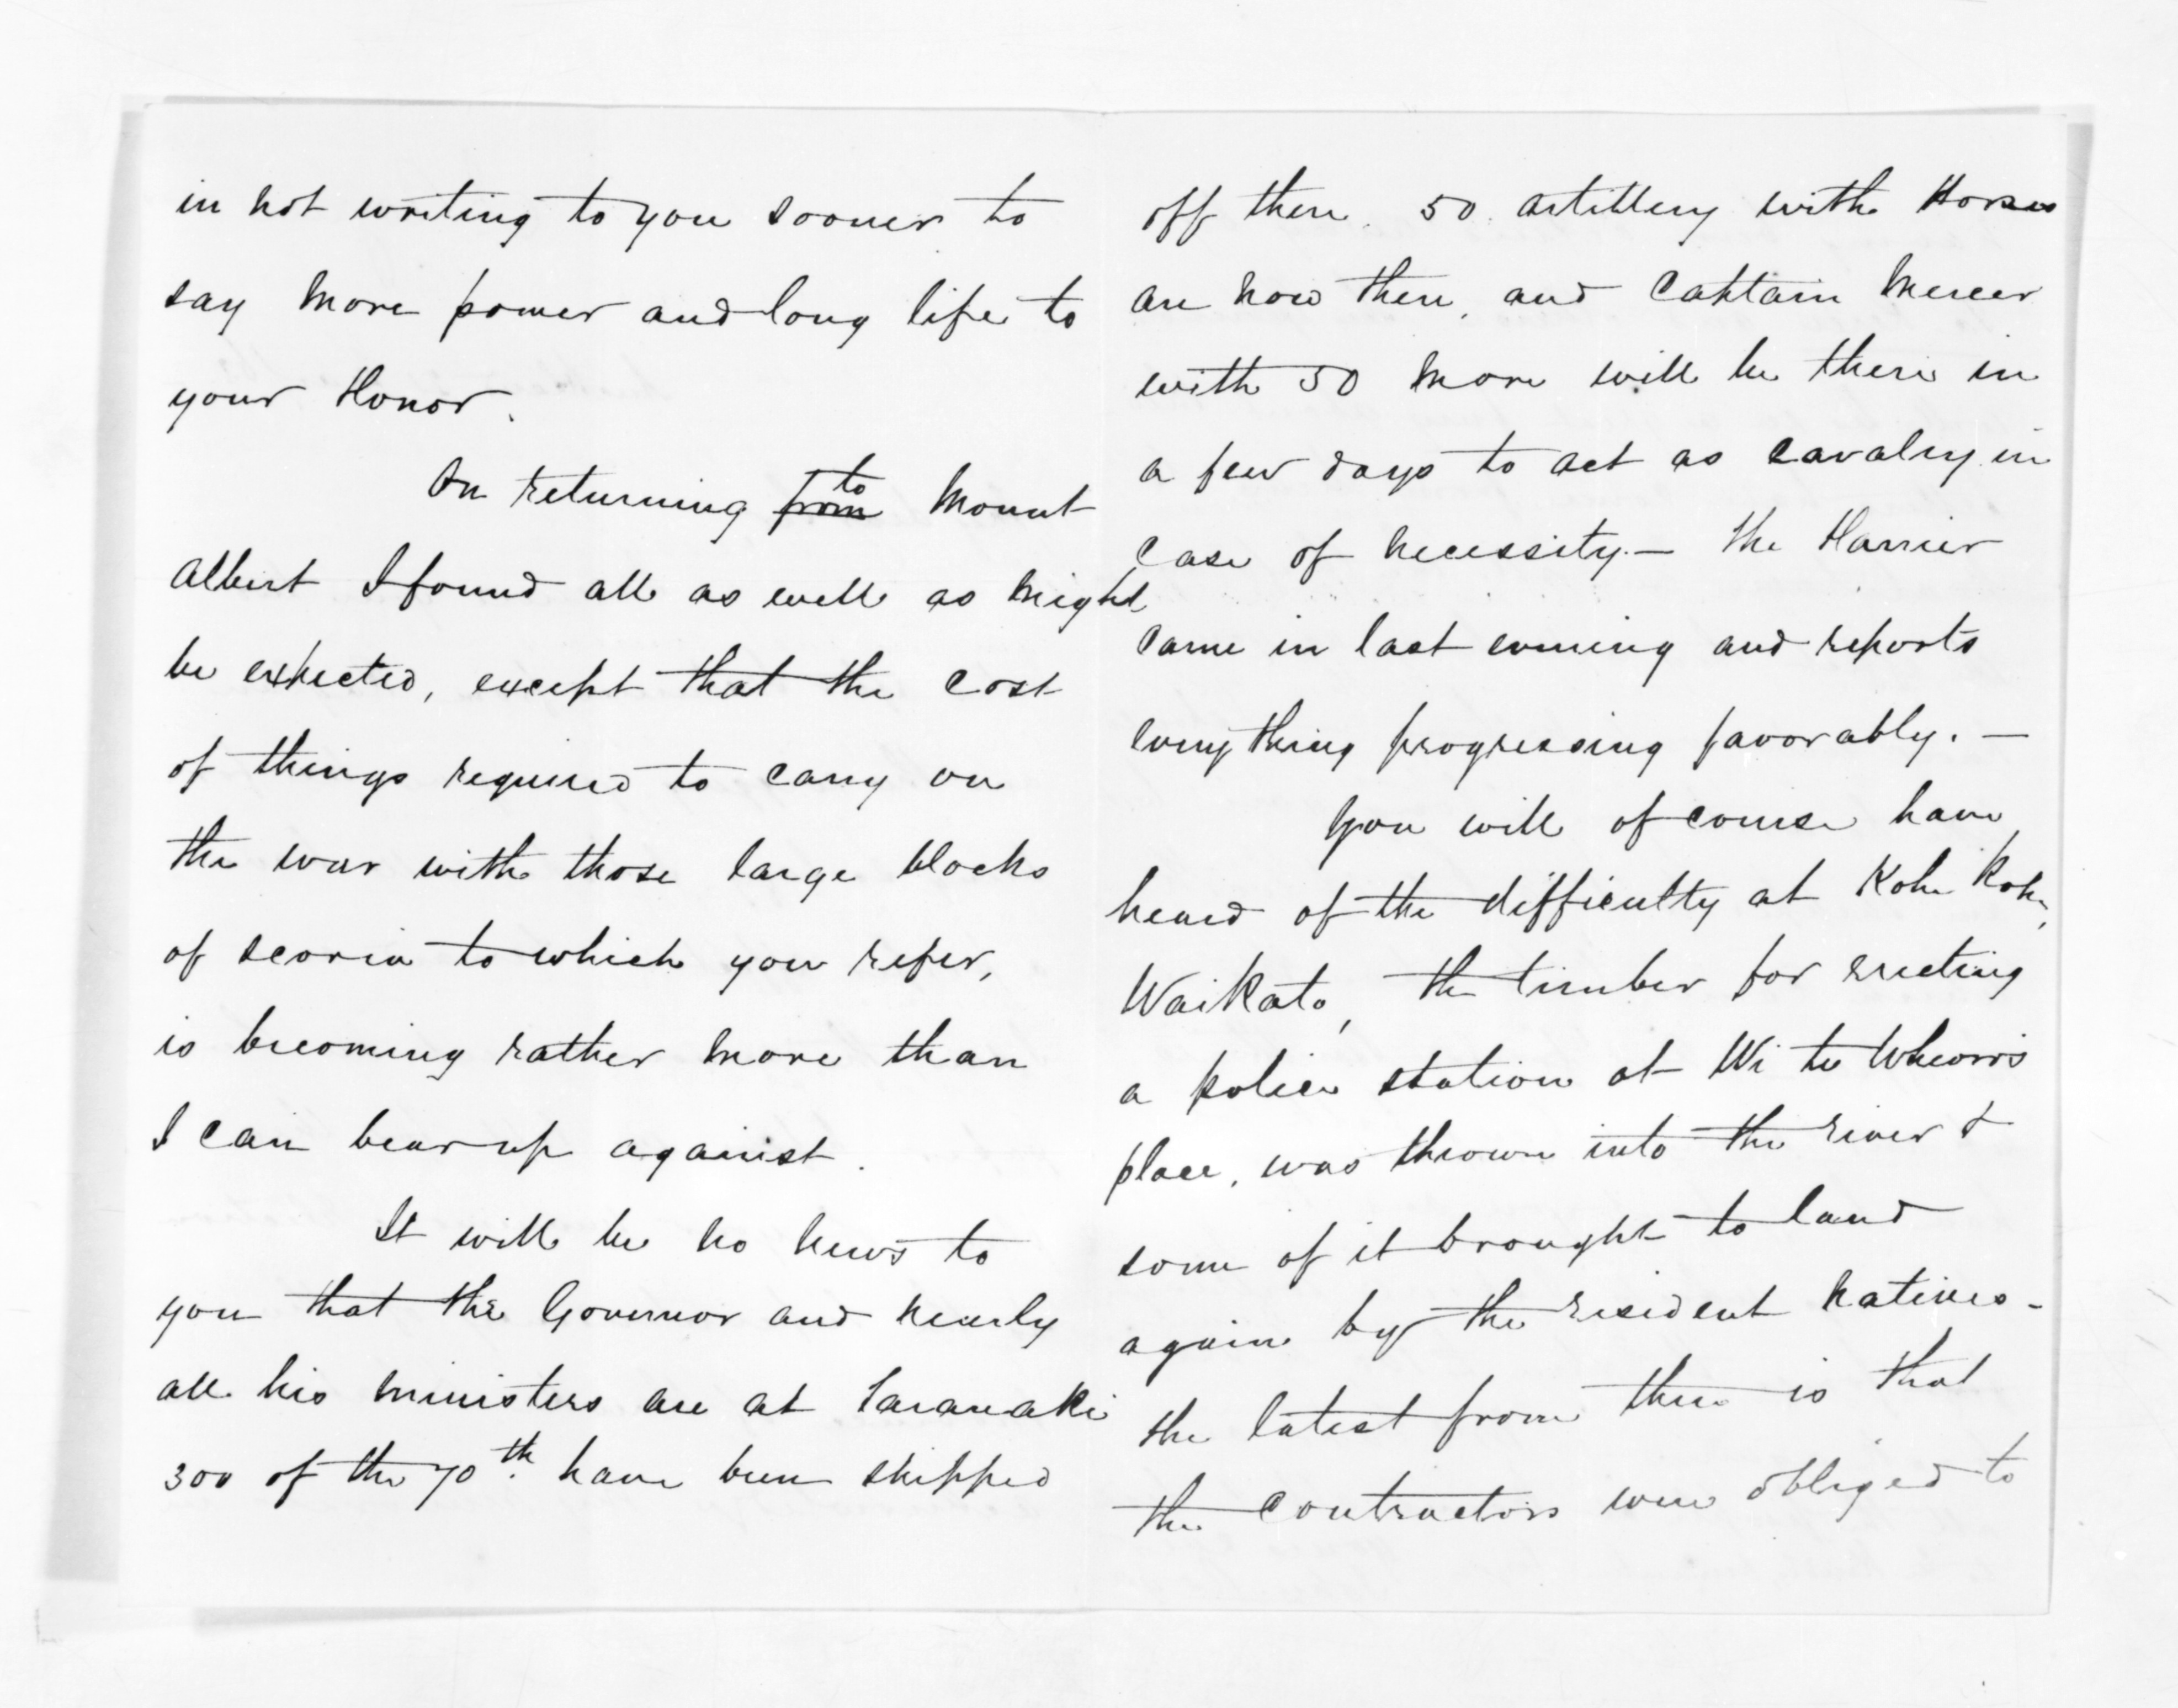 in not writing to you sooner to
say more power and long life to
your Honor.
On returning from to Mount
Albert I found all as well as might
be expected, except that the cost
of things required to carry on
the war with those large blocks
of scoria to which you refer,
is becoming rather more than
I can bear up against.
It will be no news to
you that the Governor and nearly
all his ministers are at Taranaki
300 of the 70th have been shipped
off there. 50 artillery with Horses
are now there, and Captain Mercer
with 50 more will be there in
a few days to act as cavalry in
case of necessity. — The Harrier
came in last evening and reports
everything progressing favorably. —
You will of course have
heard of the difficulty at Kohe Kohe,
Waikato, the timber for erecting
a police station at Wi te Wheoros
place, was thrown into the river &
some of it brought to land
again by the resident natives -
the latest from there is that
the contractors were obliged to